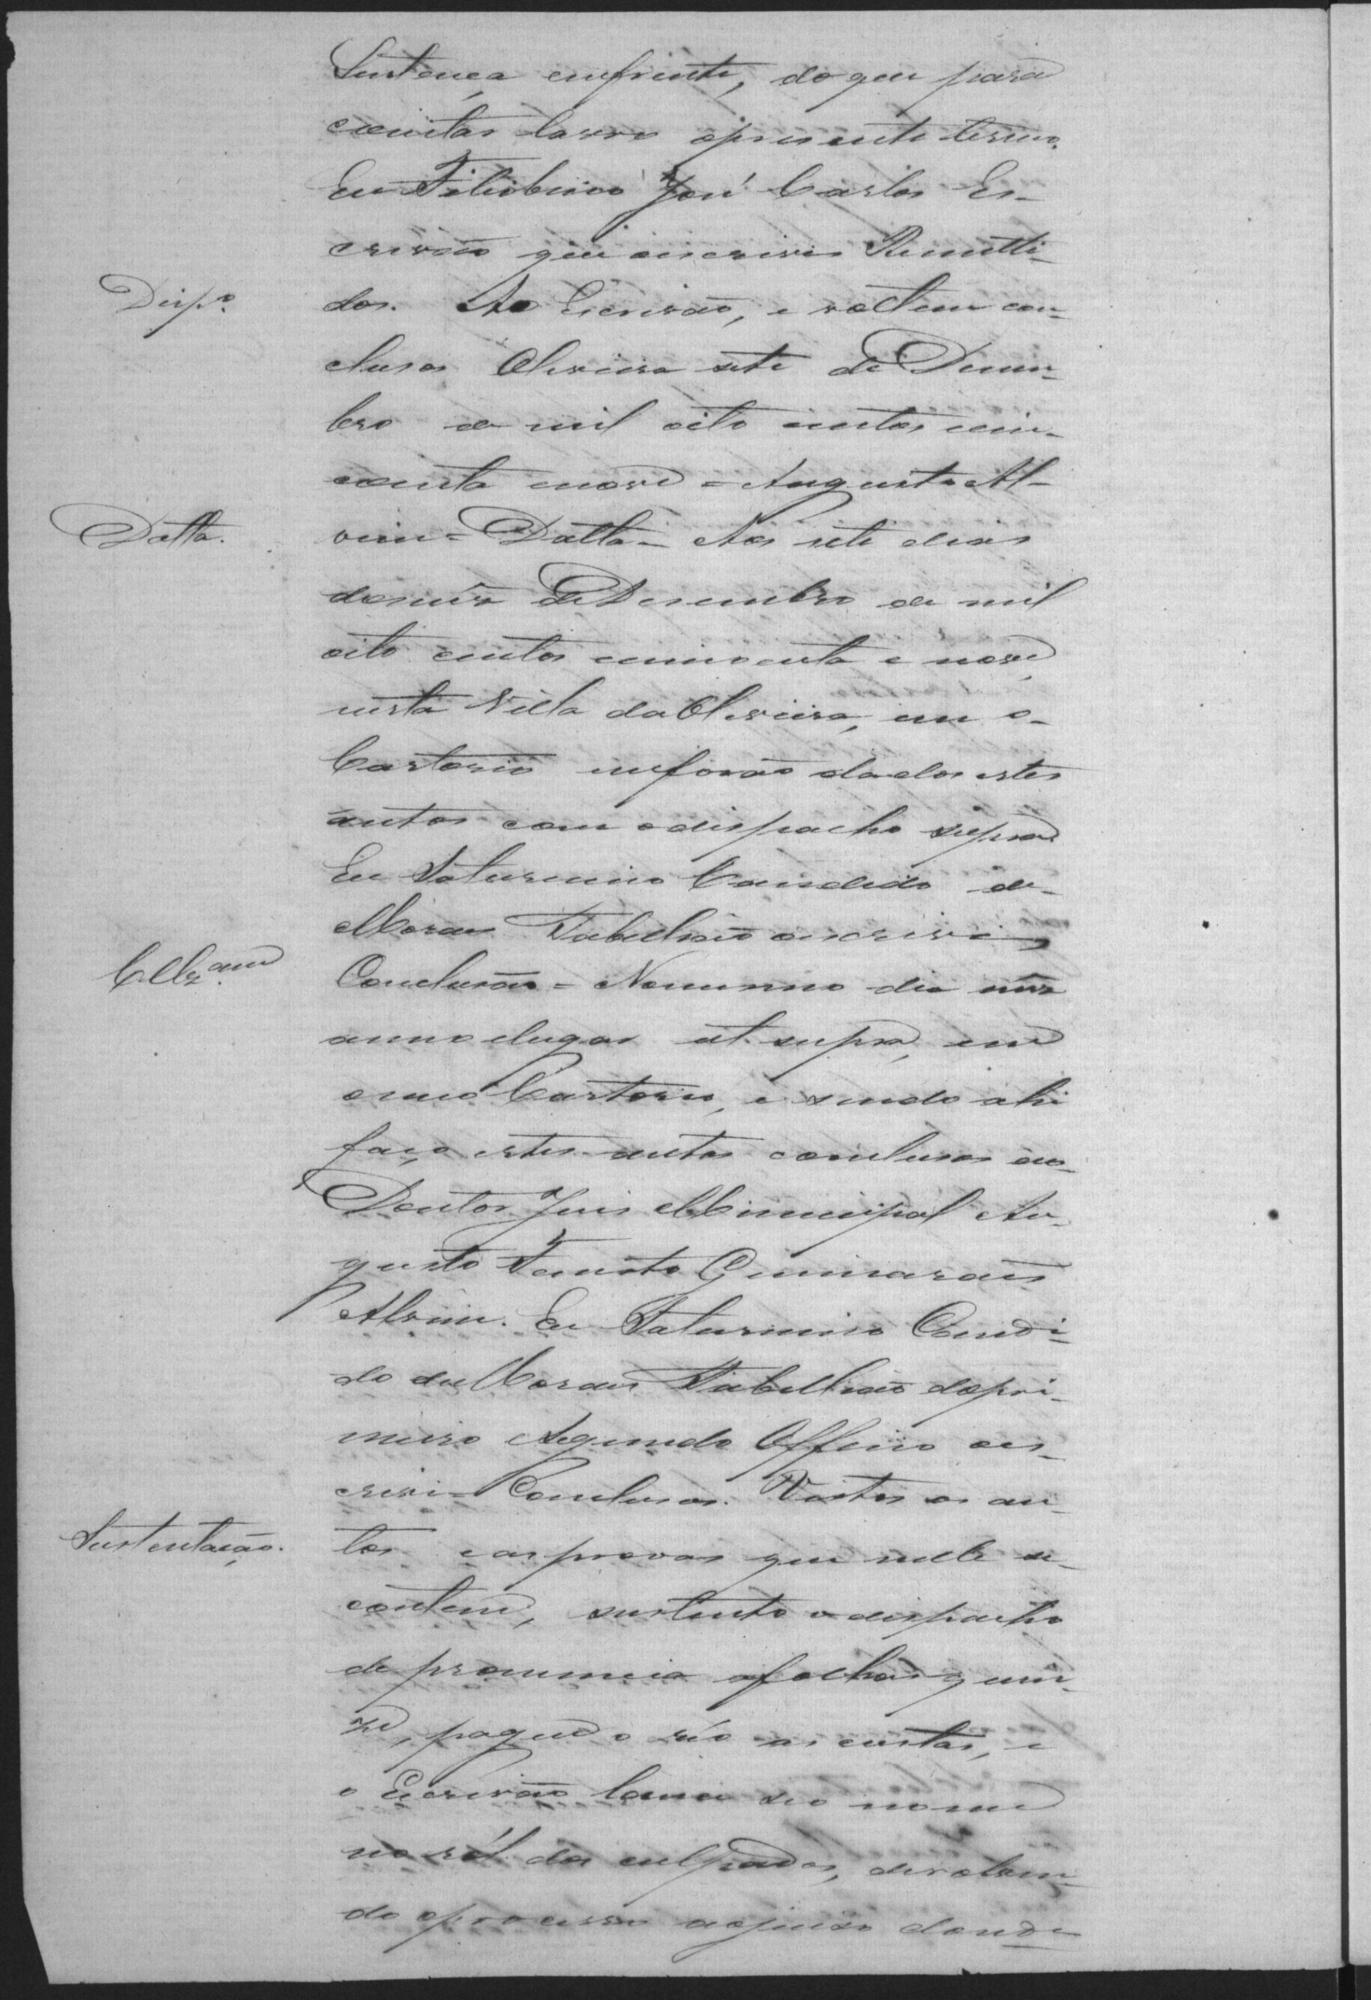 Sentença enfrente, do que para
constar lavro opresente termo.
Eu Felisbino José Carlos Es-
crivão que oescrivi Remetti-
Desp.º
dos. Ao Escrivão, e voltem con-
clusos Oliveira sete de Desem-
bro de mil oito centos cin-
coenta nove = Augusto Al-
Datta.
vim = Datta = Aos sete dias
domes de Desembro de mil
oito centos cincoenta e nove,
nesta Villa da Oliveira, em o
Cartorio meforão dados estes
autos com odespacho supra
Eu Saturnino Candido de
Moraes Tabellião oescrivi =
Cllz.am
Conclusão = Nomesmo dia mes
anno elugar ut supra, em
omeo Cartorio, e sendo ahi
faço estes autos conclusos ao
Doutor Juis Municipal Au-
gusto Fausto Guimarães
Alvim. Eu Saturnino Candi-
do de Moraes Tabellião dopri-
meiro esegundo Officio oes-
crivi = Conclusos. Vistos os au-
Sustentação.
tos easprovas que nelle se
contem, sustento odespacho
de pronuncia afolhas quin-
ze, pague o réo as custas, e
o Escrivão lance seo nome
no ról dos culpados, devolven-
do oprocesso aojuiso donde